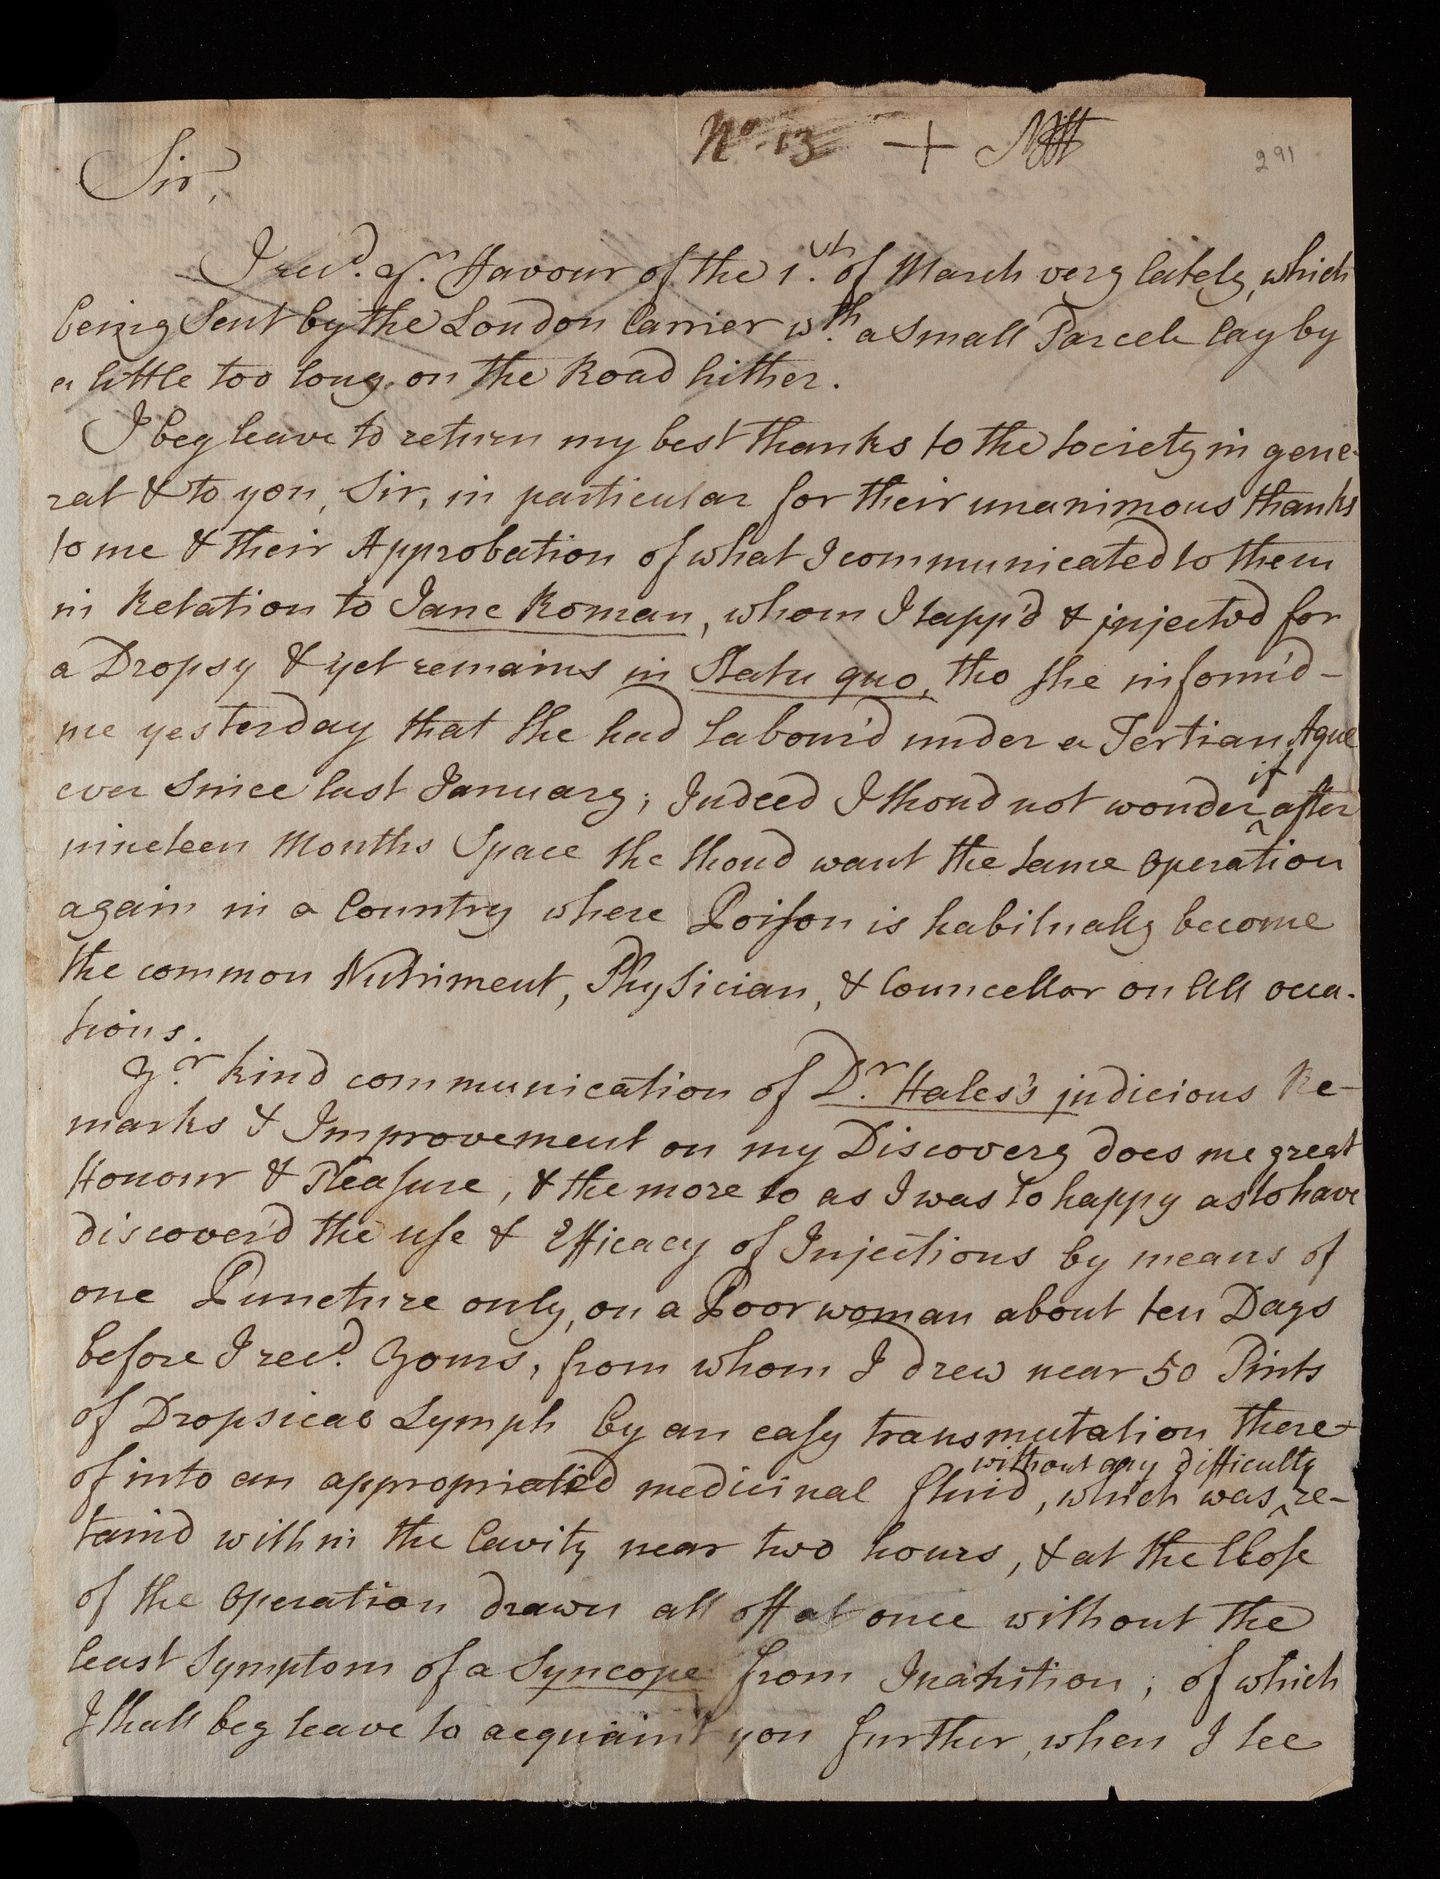 No. 13 +
291
Sir,
I recd. yr. Favour of the 1.st of March very lately, which
being Sent by the London Carrier wth. a Small Parcel lay by
a little too long on the Road hither.
I beg leave to return my best thanks to the Society in gene-
ral & to you, Sir, in particular for their unanimous thanks
to me & their Approbation of what I communicated to them
in Relation to Jane Roman, whom I tapp'd & injected for
a Dropsy & yet remains in Statu quo, tho she inform'd -
me yesterday that she had labour'd under a Tertian Ague
ever Since last January; Indeed I shoud not wonder if after
nineteen Months Space she shoud want the Same Operation
again in a Country where Poison is habitualy become
the common Nutriment, Physician, & Councellor on All occa-
sions.
Yr. kind communication of Dr. Hales's judicious Re-
marks & Improvement on my Discovery does me great
Honour & Pleasure, & the more so as I was so happy as to have
discover'd the use & Efficacy of Injections by means of
one Puncture only, on a Poor woman about ten Days
before I recd. Yours, from whom I drew near 50 Pints
of Dropsical Lymph by an easy transmutation there-
of into an appropriated medicinal fluid, which was without any difficulty re-
tain'd within the Cavity near two hours, & at the Close
of the Operation drawn all off at once without the
least Symptom of a Syncope from Inanition; of which
I shall beg leave to acquaint you further, when I see